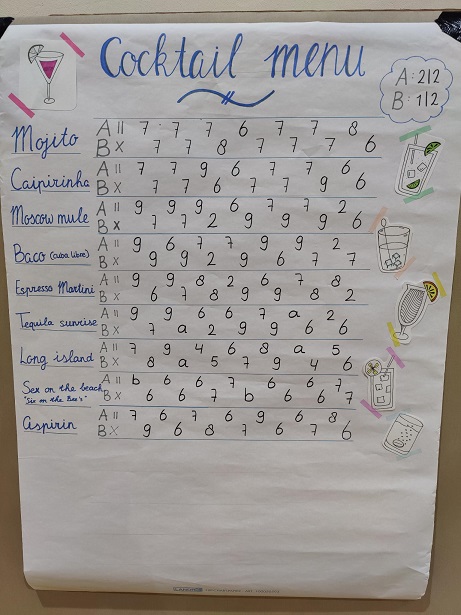 Cocktail menu
A: 212
B: 112
Mojito A 11 7 7 7 6 7 7 8
B x 7 7 8 7 7 7 6
Caipirinha A 11 7 7 9 6 7 7 6
B x 7 7 6 7 7 9 6
Moscow mule A 11 9 9 9 6 7 7 2
B x 7 7 2 9 9 9 6
Baco (cuba libre) A 11 9 6 7 7 9 9 2
B x 9 9 2 9 6 7 7
Espresso Martini A 11 9 9 8 2 6 7 8
B x 6 7 8 9 9 8 2
Tequila sunrise A 11 9 9 6 6 7 a 2
B x 7 a 2 9 9 6 6
Long island A 11 7 9 4 6 8 a 5
B x 8 a 5 7 9 4 6
Sex on the beach A 11 b 6 6 7 6 6 7
"Six on the Bee's" B x 6 6 7 b 6 6 7
Aspirin A 11 7 6 7 6 9 6 8
B x 9 6 8 7 6 7 6